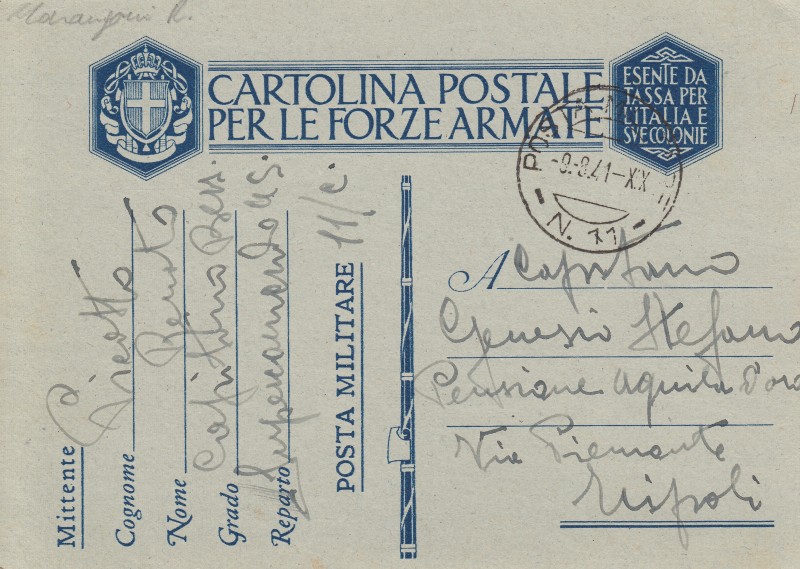 Marangoni R.
CARTOLINA POSTALE
PER LE FORZE ARMATE
ESENTE DA
TASSA PER
L'ITALIA E
SVE COLONIE
POSTA
-9-8.41-XX
N. 11
Mittente
Cognome
Nome Renato
Grado Capitano
Reparto Supercomando
POSTA MILITARE 11/C.
A Capitano
Genesio Stefano
Pensione Aquila d'oro
Via Piemonte